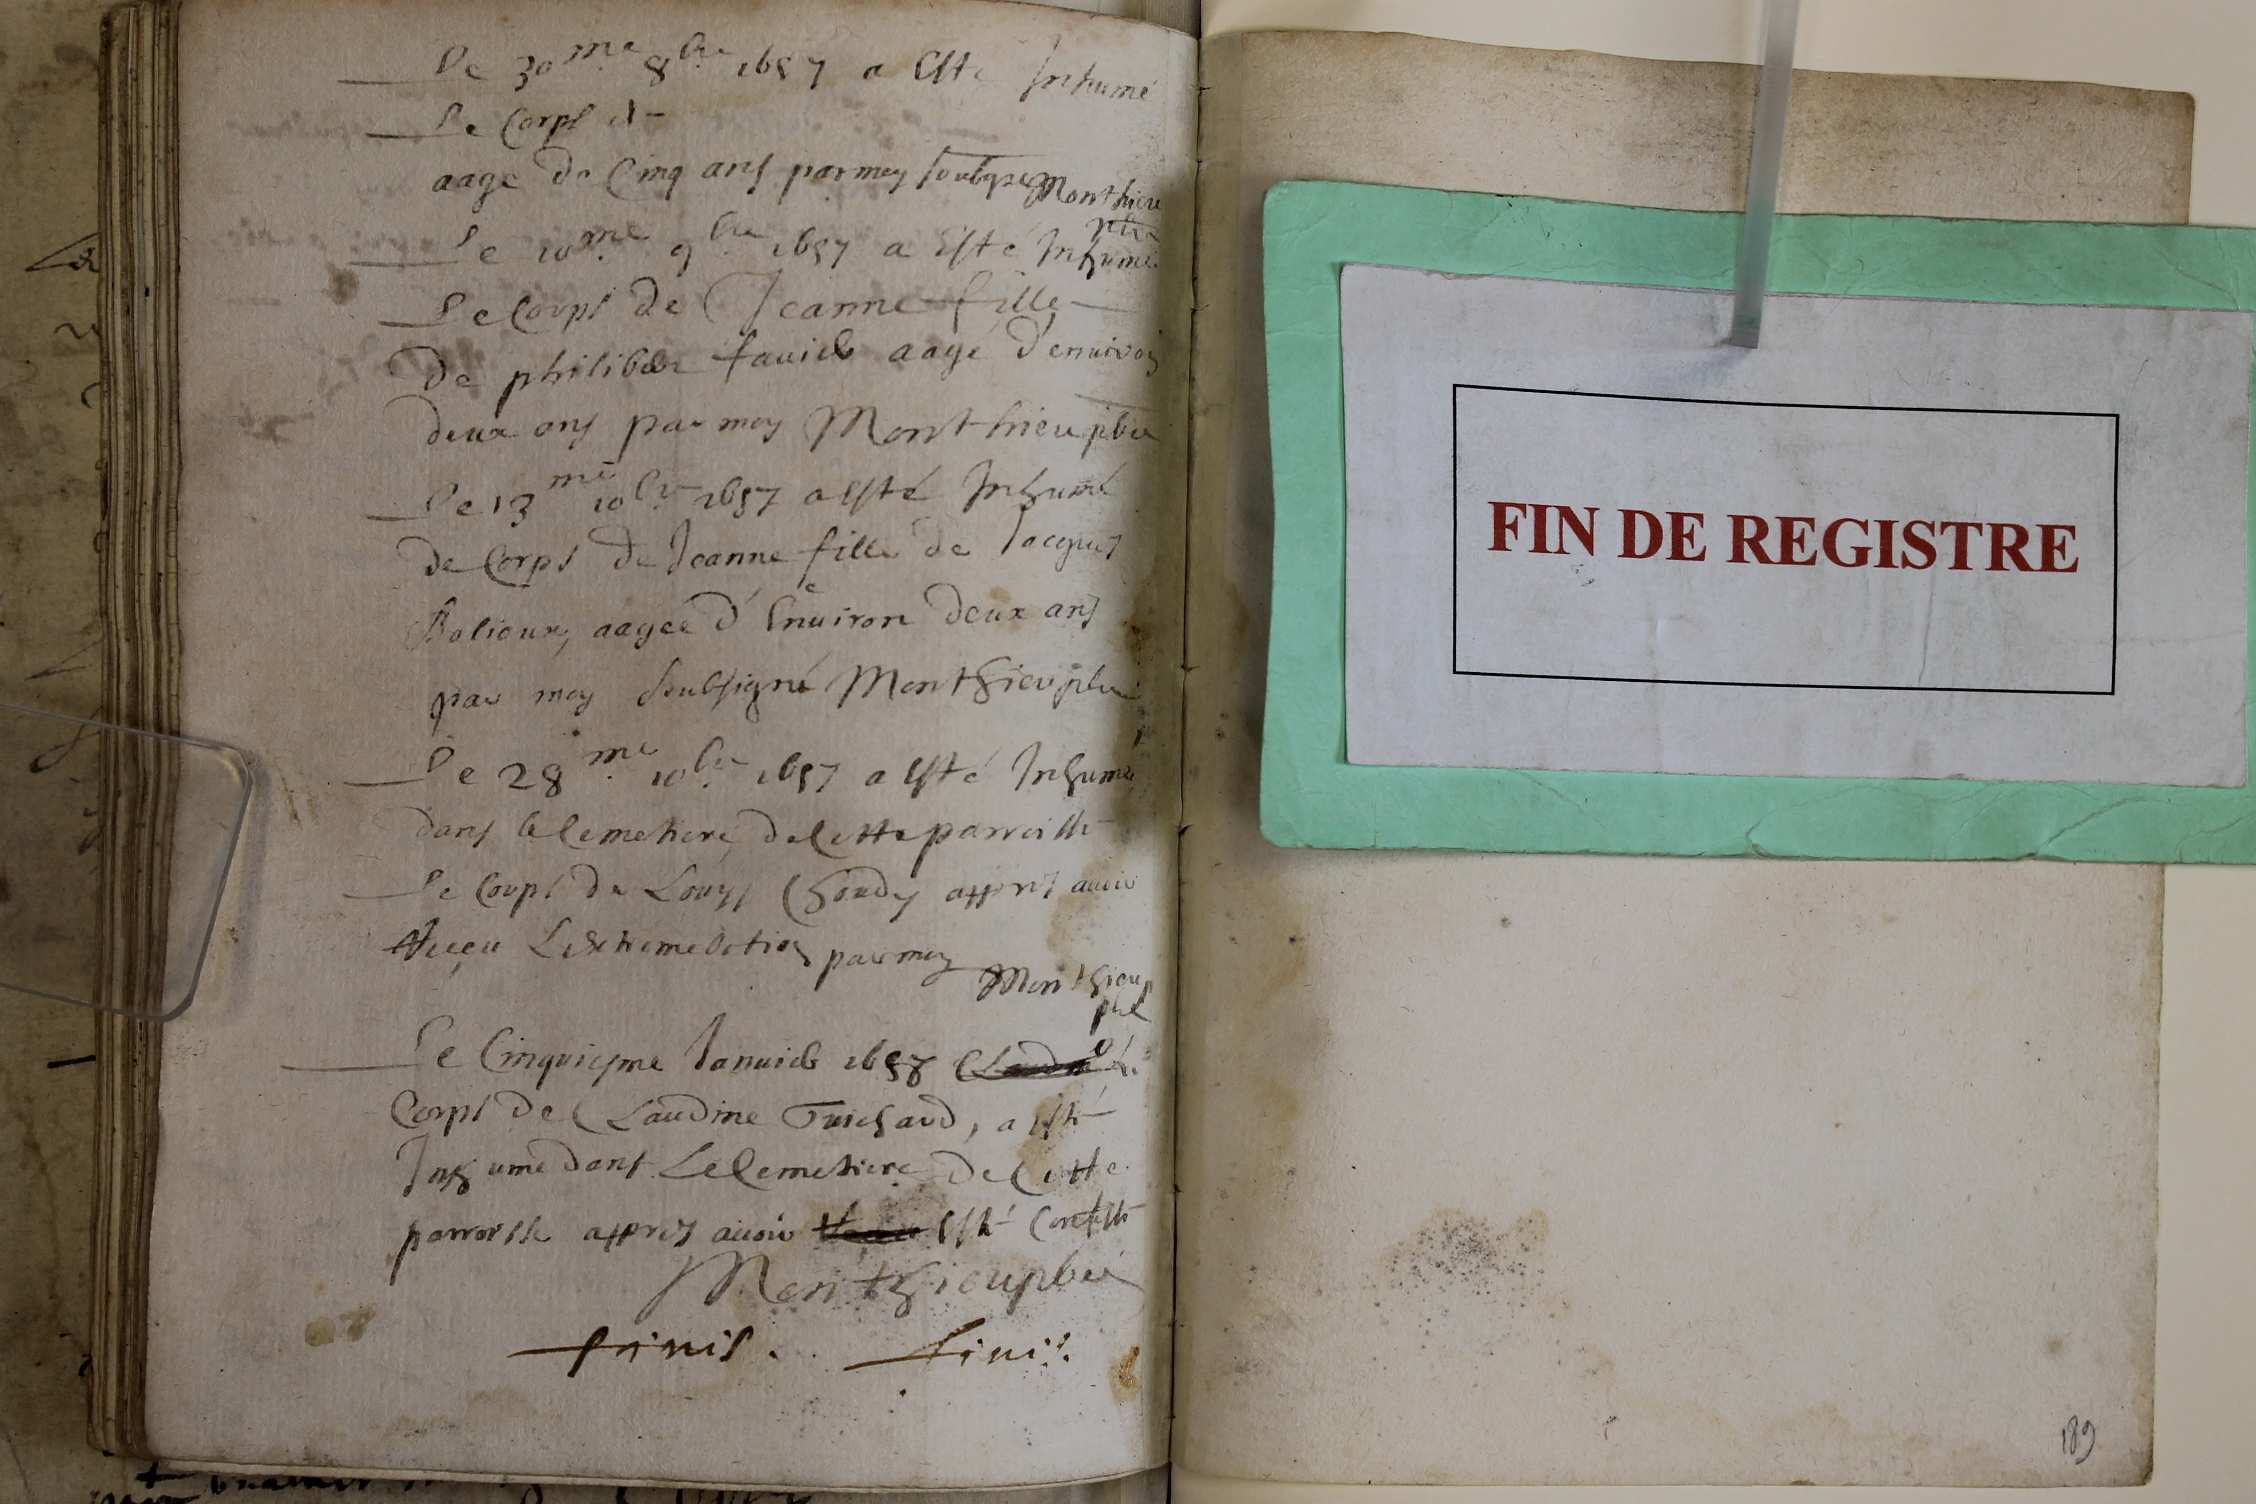 Le 30me 8bre 1657 a Esté Inhumé
Le Corps d
aage de Cinq ans par moy soubsigné Monthieu
pbre
Le 10me 9bre 1657 a Esté Inhumé
Le Corps de Jeanne fille
De philiber fauier aagé d'enuiron
deux ans par moy Monthieu pbre
Le 13me 10bre 1657 a Esté Inhumé
De Corps de Jeanne fille de Jacques
Balioux, aagée d'Enuiron deux ans
par moy soubsigné Monthieu pbre
Le 28me 10bre 1657 a Esté Inhumé
dans le Cemetiere de Cette parroisse
Le Corps de Louys Choudy appres auoir
Reçeu L'extreme Onction par moy
Monthieu
pbre
Le Cinquiesme Januier 1658 le
Corps de Claudine Guichard, a esté
Inhumé dans Le Cemetiere de Cette
parroisse appres auoir Esté Confessé
Monthieu pbre
finis. finis.
FIN DE REGISTRE
189